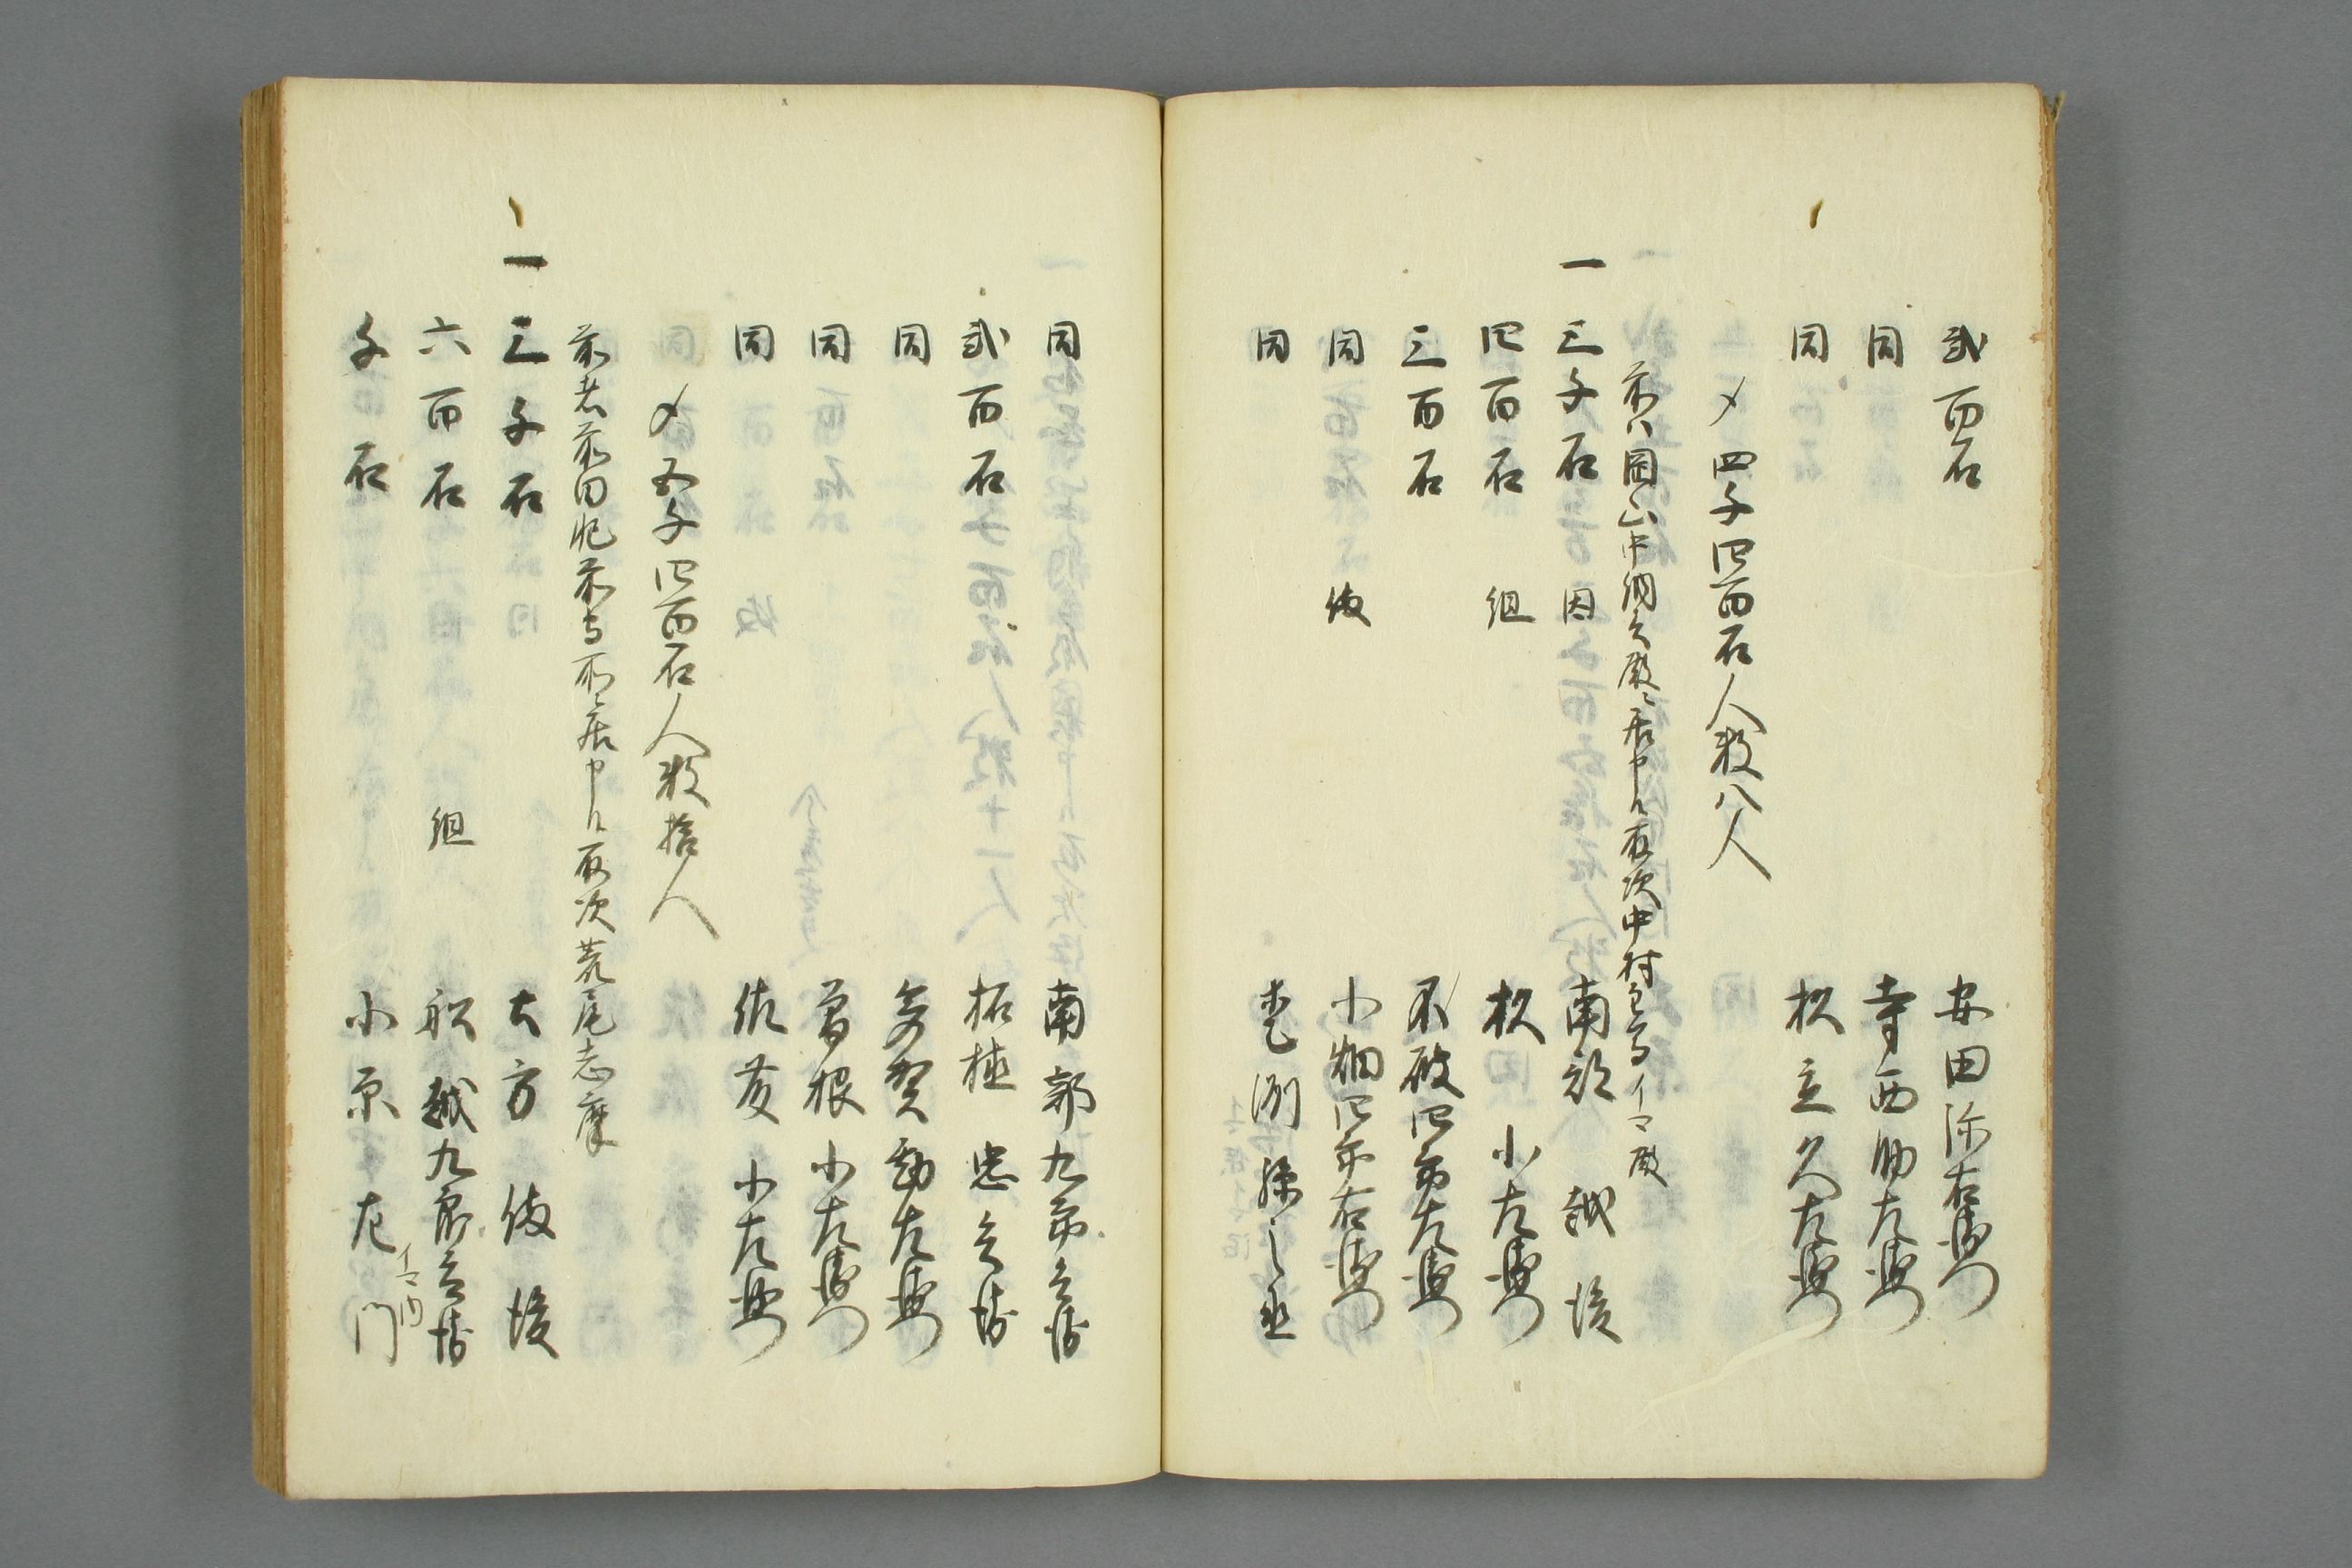 弐百石 安田弥右衛門
同 寺西助左衛門
同 松立久左衛門
〆四千四百石人数八人
前ハ岡山中納言殿ニ居申候取次中村
一三千石 因 南部越後
四百石 組 松小左衛門
三百石 不破四郎左衛門
同 後 小畑四郎右衛門
同 孫之丞
同 南部九郎兵衛
弐百石 柘植忠兵衛
同 多賀勘左衛門
同 曽根小左衛門
同 後 佐藤小左衛門
〆五千四百石人数拾人
前者前田肥前守所ニ居申候取次荒尾志摩
一三千石 大方備後
六百石 組 船越九郎兵衛
千石 小原左門